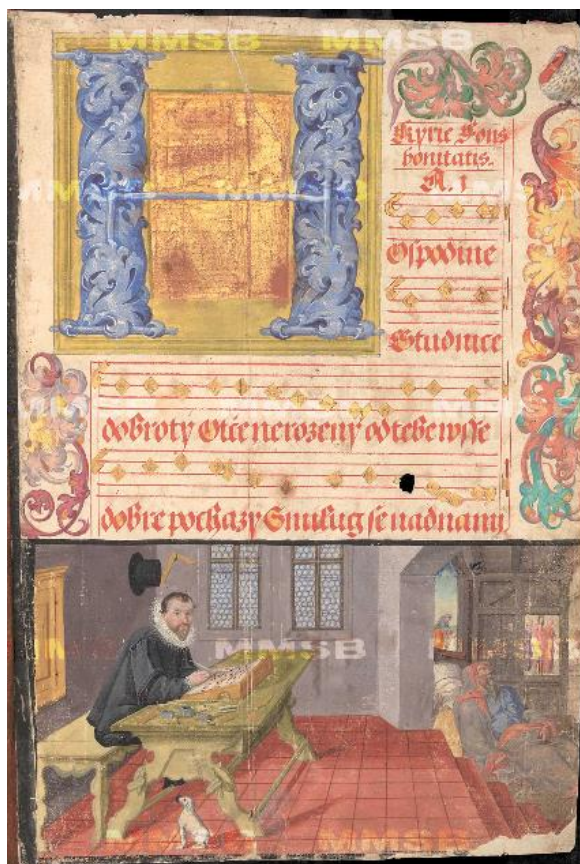 MMSB MMSB
H
Kyrie Fons
bonitatis.
A. 1
Ospodine
Studnice
dobroty Otče nerozený od tebe wsse
dobre pochazy Smilug se nad namy
MMSB
MMSB